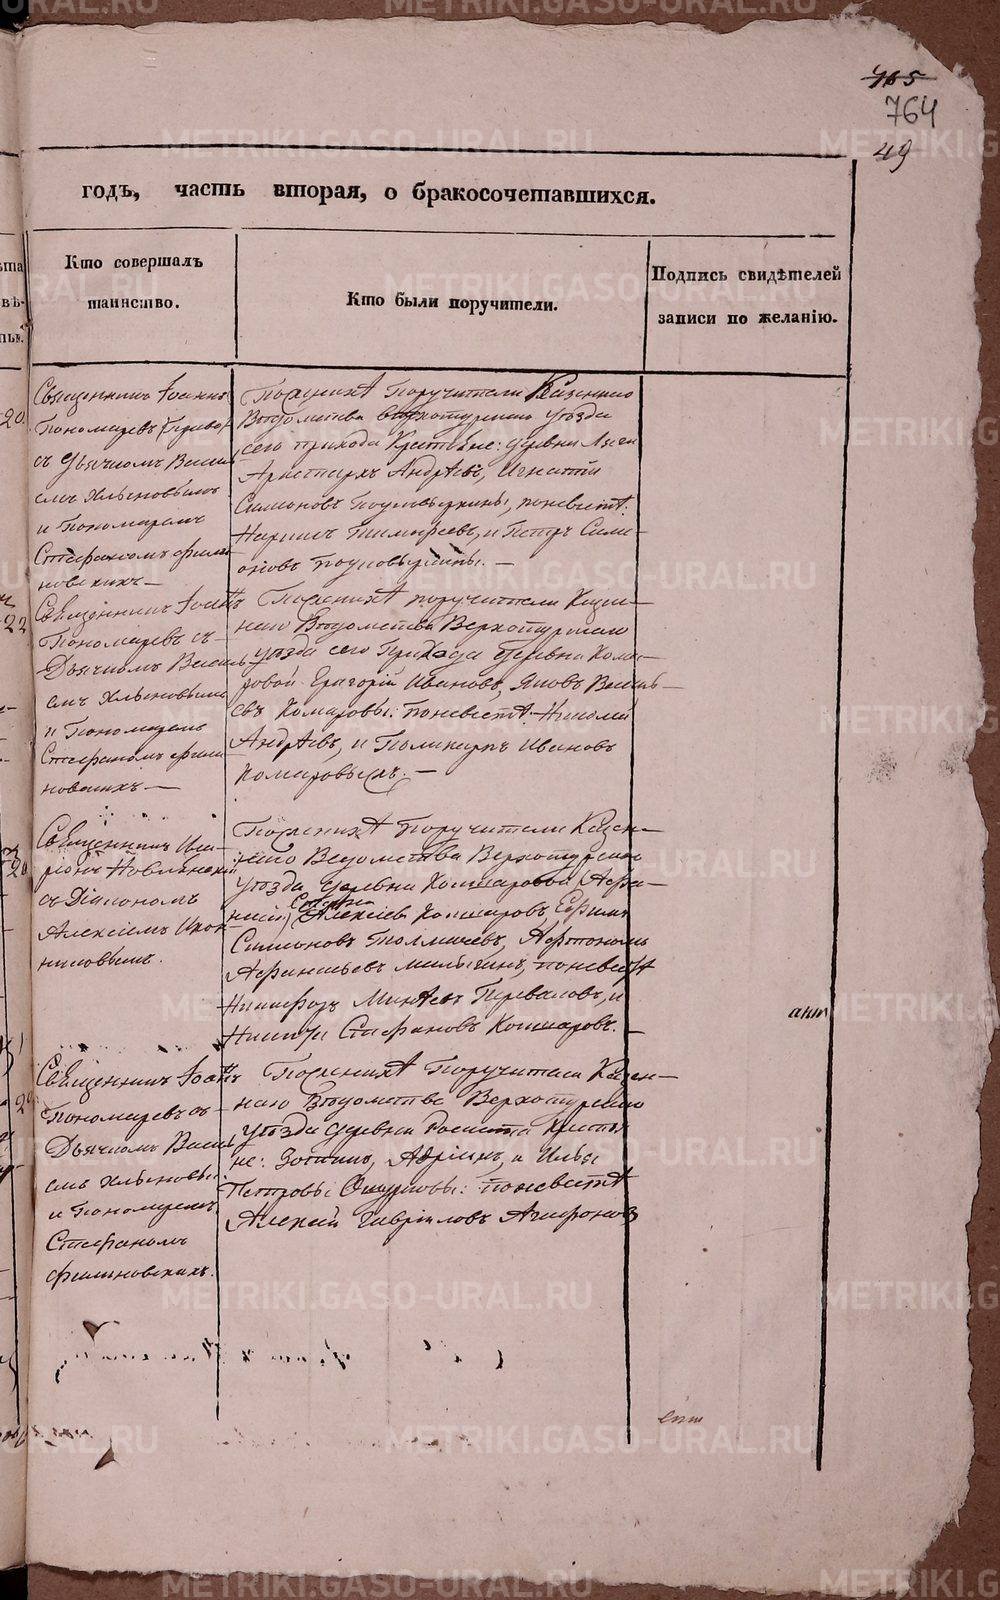 765
764
49
годъ, часть вторая, о бракосочетавшихся.
Кто совершалъ
таинство.
Кто были поручители.
Подпись свидѣтелей
записи по желанію.
Священникъ Іоаннъ
Пономаревъ
съ Дьячкомъ Васил
емъ Хлыновымъ
и Пономаремъ
Стефаномъ Фили
новскихъ —
По женихѣ поручители Казеннаго
Вѣдомства Верхотурскаго уѣзда
сего прихода Крестьяне: деревни
Аристархъ Андрѣевъ, Игнатій
Симоновъ по невѣстѣ:
Тимофеевъ, и Петръ Симо-
новъ —
Священникъ Іоаннъ
Пономаревъ съ
Дьячкомъ Василь
емъ Хлыновымъ
и Пономаремъ
Стефаномъ Фили
новскихъ —
По женихѣ поручители Казен—
наго Вѣдомства Верхотурскаго
уѣзда сего Прихода деревни Кома—
ровой Григорій Ивановъ, Яковъ Василь—
евъ Комаровы: по невѣстѣ Николай
Андрѣевъ, и Поликарпъ Ивановъ
Комаровыхъ. —
Священникъ Ила-
ріонъ
съ Діакономъ
Алексіемъ Икон
никовымъ.
По женихѣ поручители Казен—
наго Ведомства Верхотурскаго
уѣзда деревни Кошкаровой (Афа—
насій) Стефанъ Алексіевъ Кошкаровъ, Ефимъ
Симоновъ Толмачевъ, Афтономъ
Афанасьевъ по невѣстѣ
Никифоръ Минѣевъ Переваловъ, и
Никита Стефановъ Кошкаровъ. —
Священникъ Іоаннъ
Пономаревъ съ
Дьячкомъ Василь
емъ Хлыновы
и Пономаремъ
Стефаномъ
Филиновскихъ.
По женихѣ Поручители Казен—
наго Вѣдомства Верхотурскаго
уѣзда деревни Кресть
яне: Зотикъ, Адріанъ, и Илья
Петровы Ошурковы: по невѣстѣ
Алексій Гавріиловъ Агафоновъ